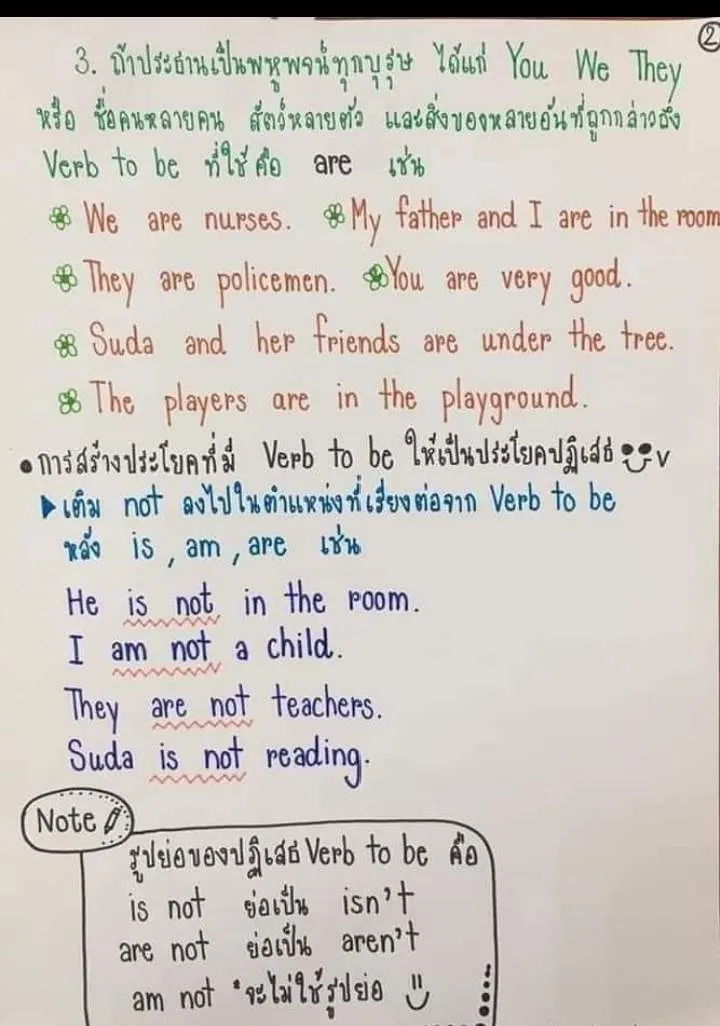 ②
3. ถ้าประธานเป็นพหูพจน์ทุกบุรุษ ได้แก่ You We They
หรือ ชื่อคนหลายคน สัตว์หลายตัว และสิ่งของหลายอันที่ถูกกล่าวถึง
Verb to be ที่ใช้ คือ are เช่น
We are nurses. My father and I are in the room
They are policemen. You are very good.
Suda and her friends are under the tree.
The players are in the playground.
• การสร้างประโยคที่มี Verb to be ให้เป็นประโยคปฏิเสธ v
▶ เติม not ลงไปในตำแหน่งที่เรียงต่อจาก Verb to be
หลัง is , am , are เช่น
He is not in the room.
I am not a child.
They are not teachers.
Suda is not reading.
Note
รูปย่อของปฏิเสธ Verb to be คือ
is not ย่อเป็น isn't
are not ย่อเป็น aren't
am not *จะไม่ใช้รูปย่อ